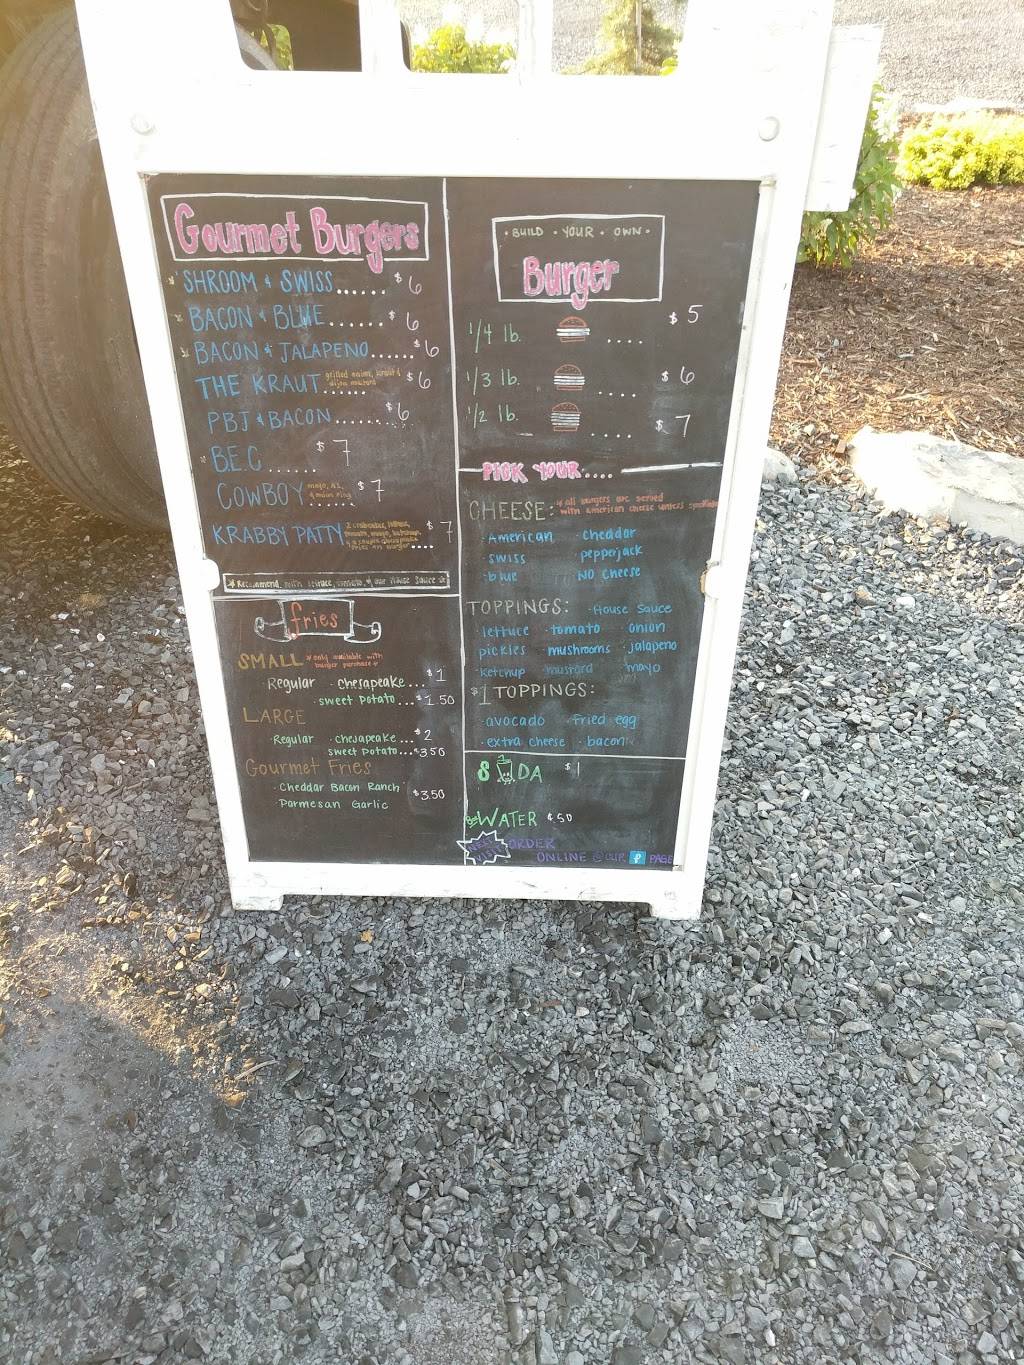 Gourmet Burgers
SHROOM & SWISS...... $6
BACON & BLUE...... $6
BACON & JALAPENO...... $6
THE KRAUT grilled onion, kraut &
dijon mustard ...... $6
PBJ & BACON........ $6
B.E.C...... $7
COWBOY mayo,
& onion ring ...... $7
KRABBY PATTY lettuce,
tomato, mayo, ketchup,
fries on burger .... $7
* Recommend with lettuce, tomato, & our House Sauce *
fries
SMALL * only available with
burger purchase *
Regular · chesapeake... $1
· sweet potato... $1.50
LARGE
· Regular · chesapeake... $2
sweet potato... $3.50
Gourmet Fries
· Cheddar Bacon Ranch $3.50
· Parmesan Garlic
· BUILD · YOUR · OWN ·
Burger
1/4 lb. .... $5
1/3 lb. .... $6
1/2 lb. .... $7
PICK YOUR....
CHEESE: * all burgers are served
with american cheese unless specified
· American · cheddar
· swiss pepperjack
· blue NO cheese
TOPPINGS: · House sauce
lettuce · tomato onion
pickles · mushrooms · jalapeno
ketchup mustard mayo
$1 TOPPINGS:
· avocado · Fried egg
· extra cheese · bacon
SODA $1
WATER $.50
ORDER
ONLINE PAGE